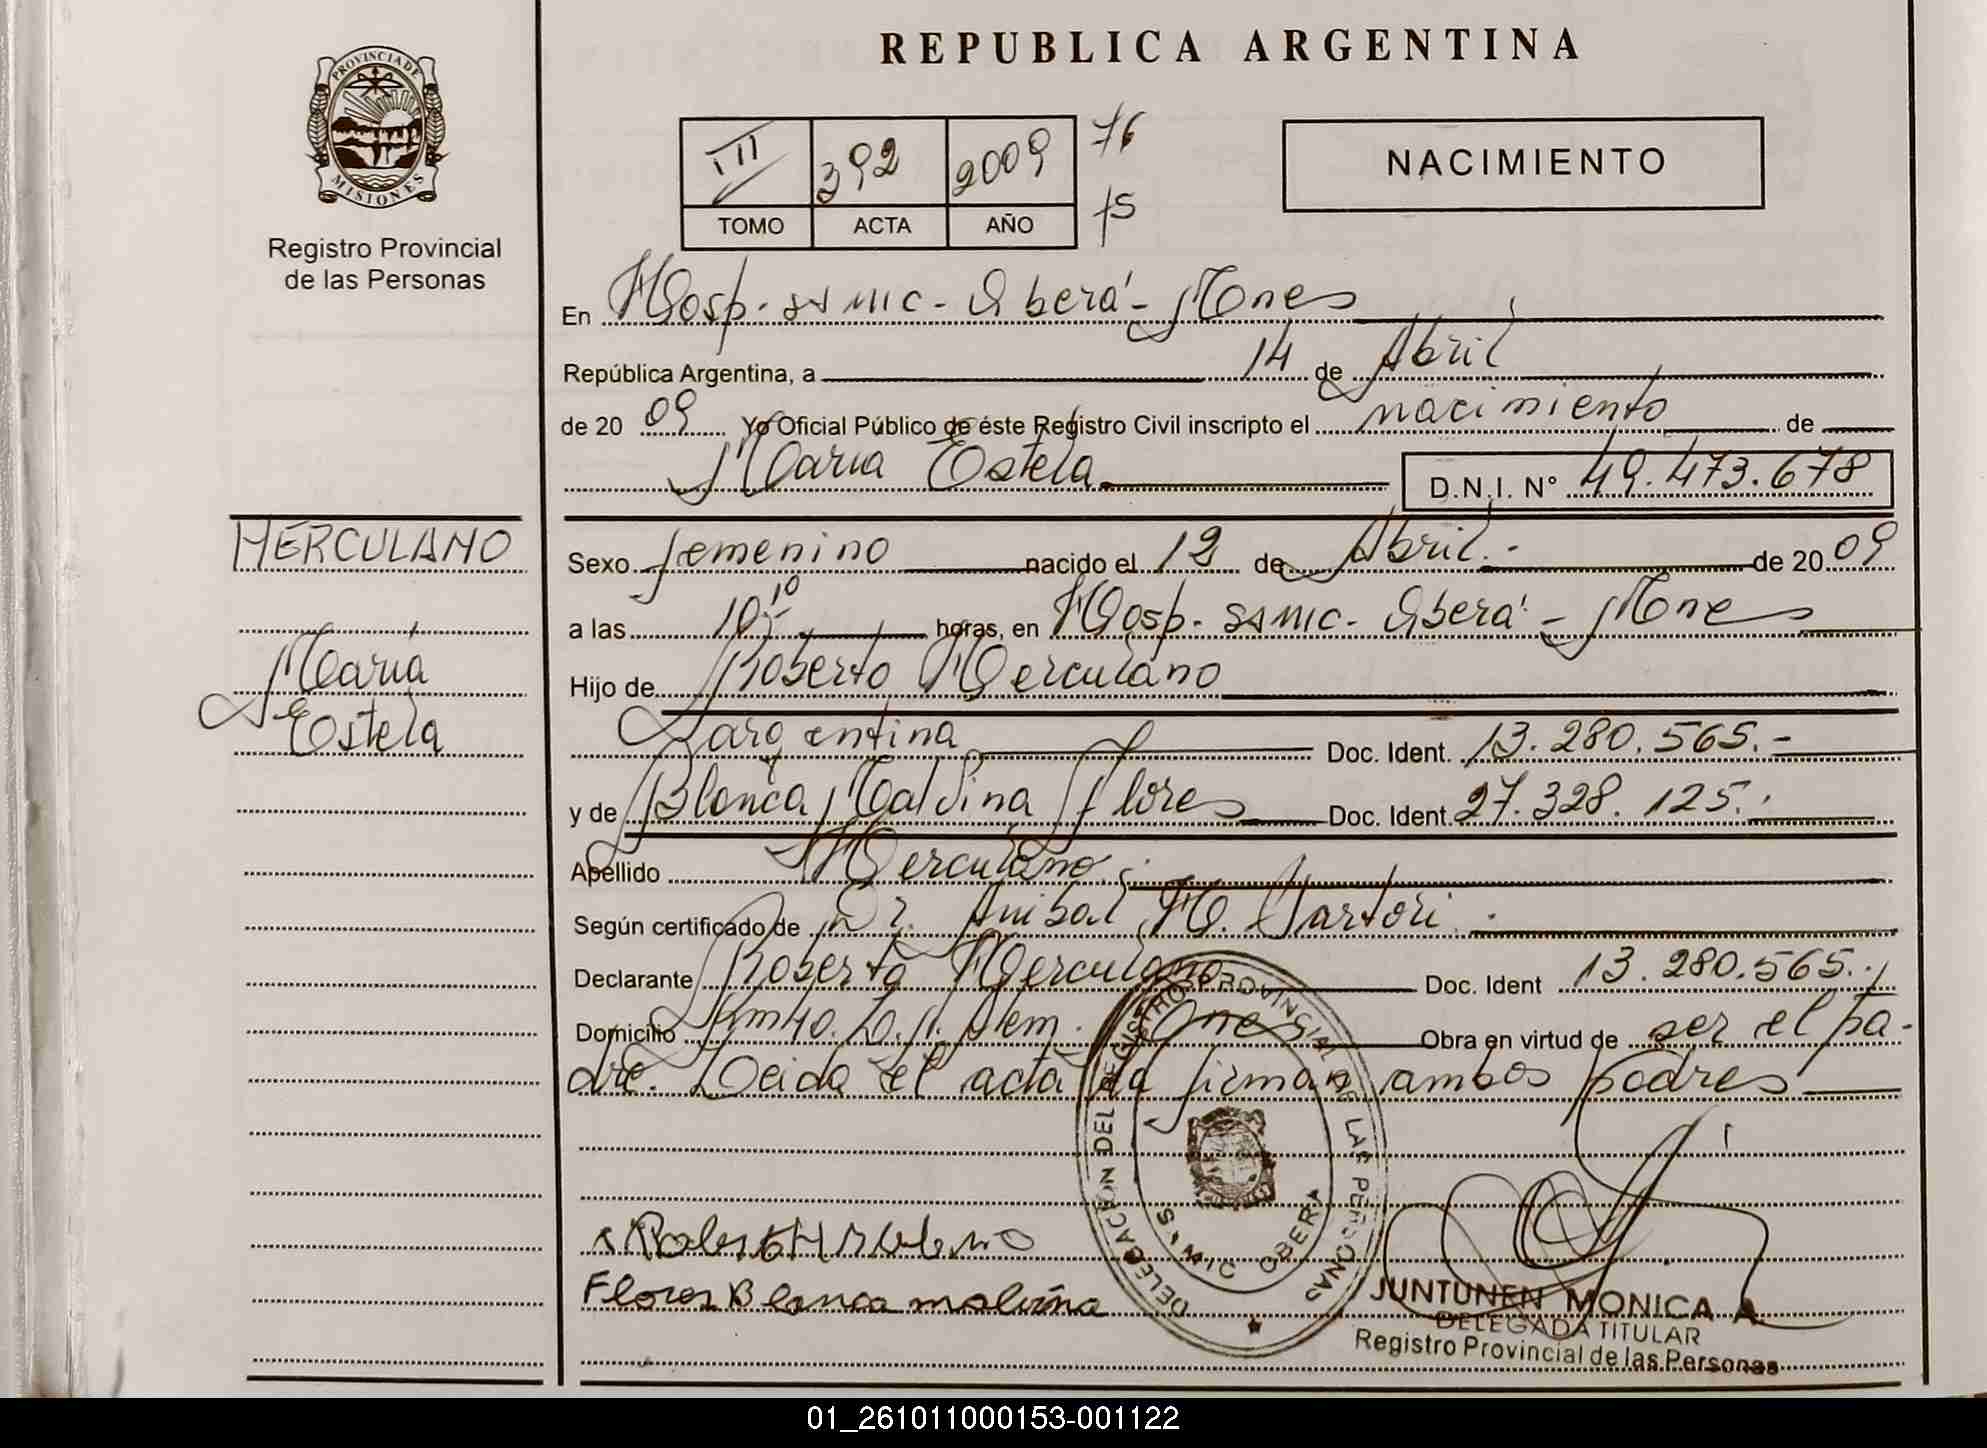 REPUBLICA ARGENTINA
PROVINCIA DE
MISIONES
Registro Provincial
de las Personas
III 392 2009 76
TOMO ACTA AÑO 75
NACIMIENTO
En Hosp. SAMIC - Oberá - Mones
República Argentina, a 14 de Abril
de 2009 Yo Oficial Público de éste Registro Civil inscripto el nacimiento de
María Estela D.N.I. N° 49.473.678
HERCULANO
María
Estela
Sexo femenino nacido el 12 de Abril.- de 2009
a las 10,10 horas, en Hosp. SAMIC - Oberá - Mones
Hijo de Roberto Herculano
argentina Doc. Ident. 13.280.565.-
y de Blanca Malvina Flores Doc. Ident. 27.328.125.-
Apellido Herculano.
Según certificado de Dr. Anibal H. Sartori.
Declarante Roberto Herculano Doc. Ident 13.280.565.
Domicilio Km 40. L.N. Alem. Mones Obra en virtud de ser el pa-
dre. Leida el acta la firman ambos padres
DELEGACION DEL REGISTRO PROVINCIAL DE LAS PERSONAS
SAMIC OBERA
Flores Blanca malvina
JUNTUNEN MONICA A.
DELEGADA TITULAR
Registro Provincial de las Personas
01_261011000153-001122